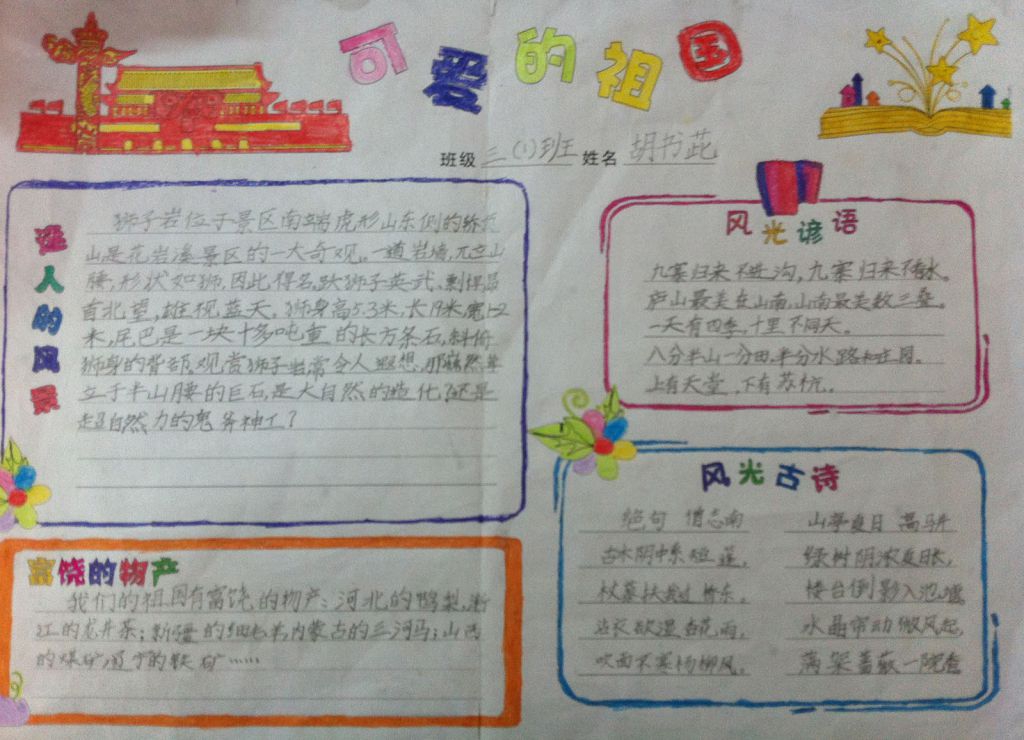 可爱的祖国
班级 三(1)班 姓名 胡书芘
迷人的风景
狮子岩位于景区南端虎形山东侧的轿顶
山是花岩溪景区的一大奇观。一道岩墙,兀立山
腰,形状如狮,因此得名,此狮子英武、剽悍,昂
首北望,雄视蓝天。狮身高5.3米,长17米,宽12
米,尾巴是一块十多吨重的长方条石,斜俯
狮身的背部,观赏狮子岩常令人遐想,那巍然耸
立于半山腰的巨石,是大自然的造化,还是
超自然力的鬼斧神工?
富饶的物产
我们的祖国有富饶的物产:河北的鸭梨,浙
江的龙井茶;新疆的细毛羊,内蒙古的三河马;山西
的煤矿,辽宁的铁矿……
风光谚语
九寨归来不进沟,九寨归来不看水。
庐山最美在山南,山南最美数三叠。
一天有四季,十里不同天。
八分半山一分田,半分水路和庄园。
上有天堂,下有苏杭。
风光古诗
绝句 僧志南
古木阴中系短蓬,
杖藜扶我过桥东。
沾衣欲湿杏花雨,
吹面不寒杨柳风。
山亭夏日 高骈
绿树阴浓夏日长,
楼台倒影入池塘
水晶帘动微风起,
满架蔷薇一院香